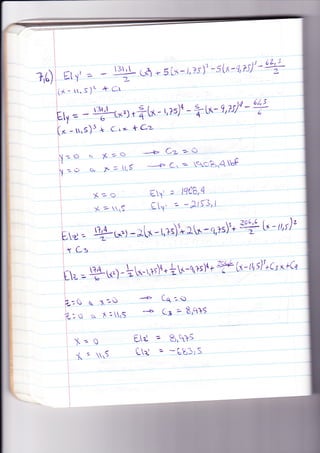 7,6) EIy' = - 131,1/2 (x²) + 5(x-1,75)³ - 5(x-9,75)³ - 62,5/2
(x-11,5)² + C1
EIy = - 131,1/6 (x³) + 5/4 (x-1,75)⁴ - 5/4 (x-9,75)⁴ -
(x-11,5)³ + C1x + C2
y=0 a x=0 → C2=0
y=0 a x=11,5 → C1 = 1908,4 lbf
x=0 EIy' = 1908,4
x=11,5 EIy' = -2153,1
EIz' = 17,4/2 (x²) - 2(x-1,75)³ + 2(x-9,75)³ + 206,6/2 (x-11,5)²
+ C3
EIz = 17,4/6 (x³) - 1/2 (x-1,75)⁴ + 1/2 (x-9,75)⁴ + 206,6/6 (x-11,5)³ + C3x + C4
z=0 a x=0 → C4=0
z=0 a x=11,5 → C3 = 8,975
x=0 EIz' = 8,975
x=11,5 EIz' = -683,5